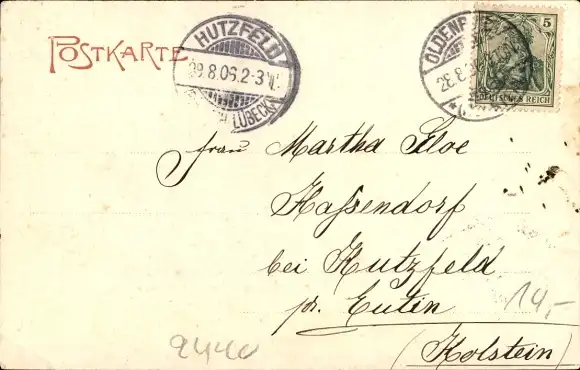 POSTKARTE
HUTZFELD
29.8.06.2-3N.
LÜBECK
28.8.
5
DEUTSCHES REICH
Frau Martha
Hassendorf
bei Hutzfeld
pr. Eutin
(Holstein)
14,-
9440